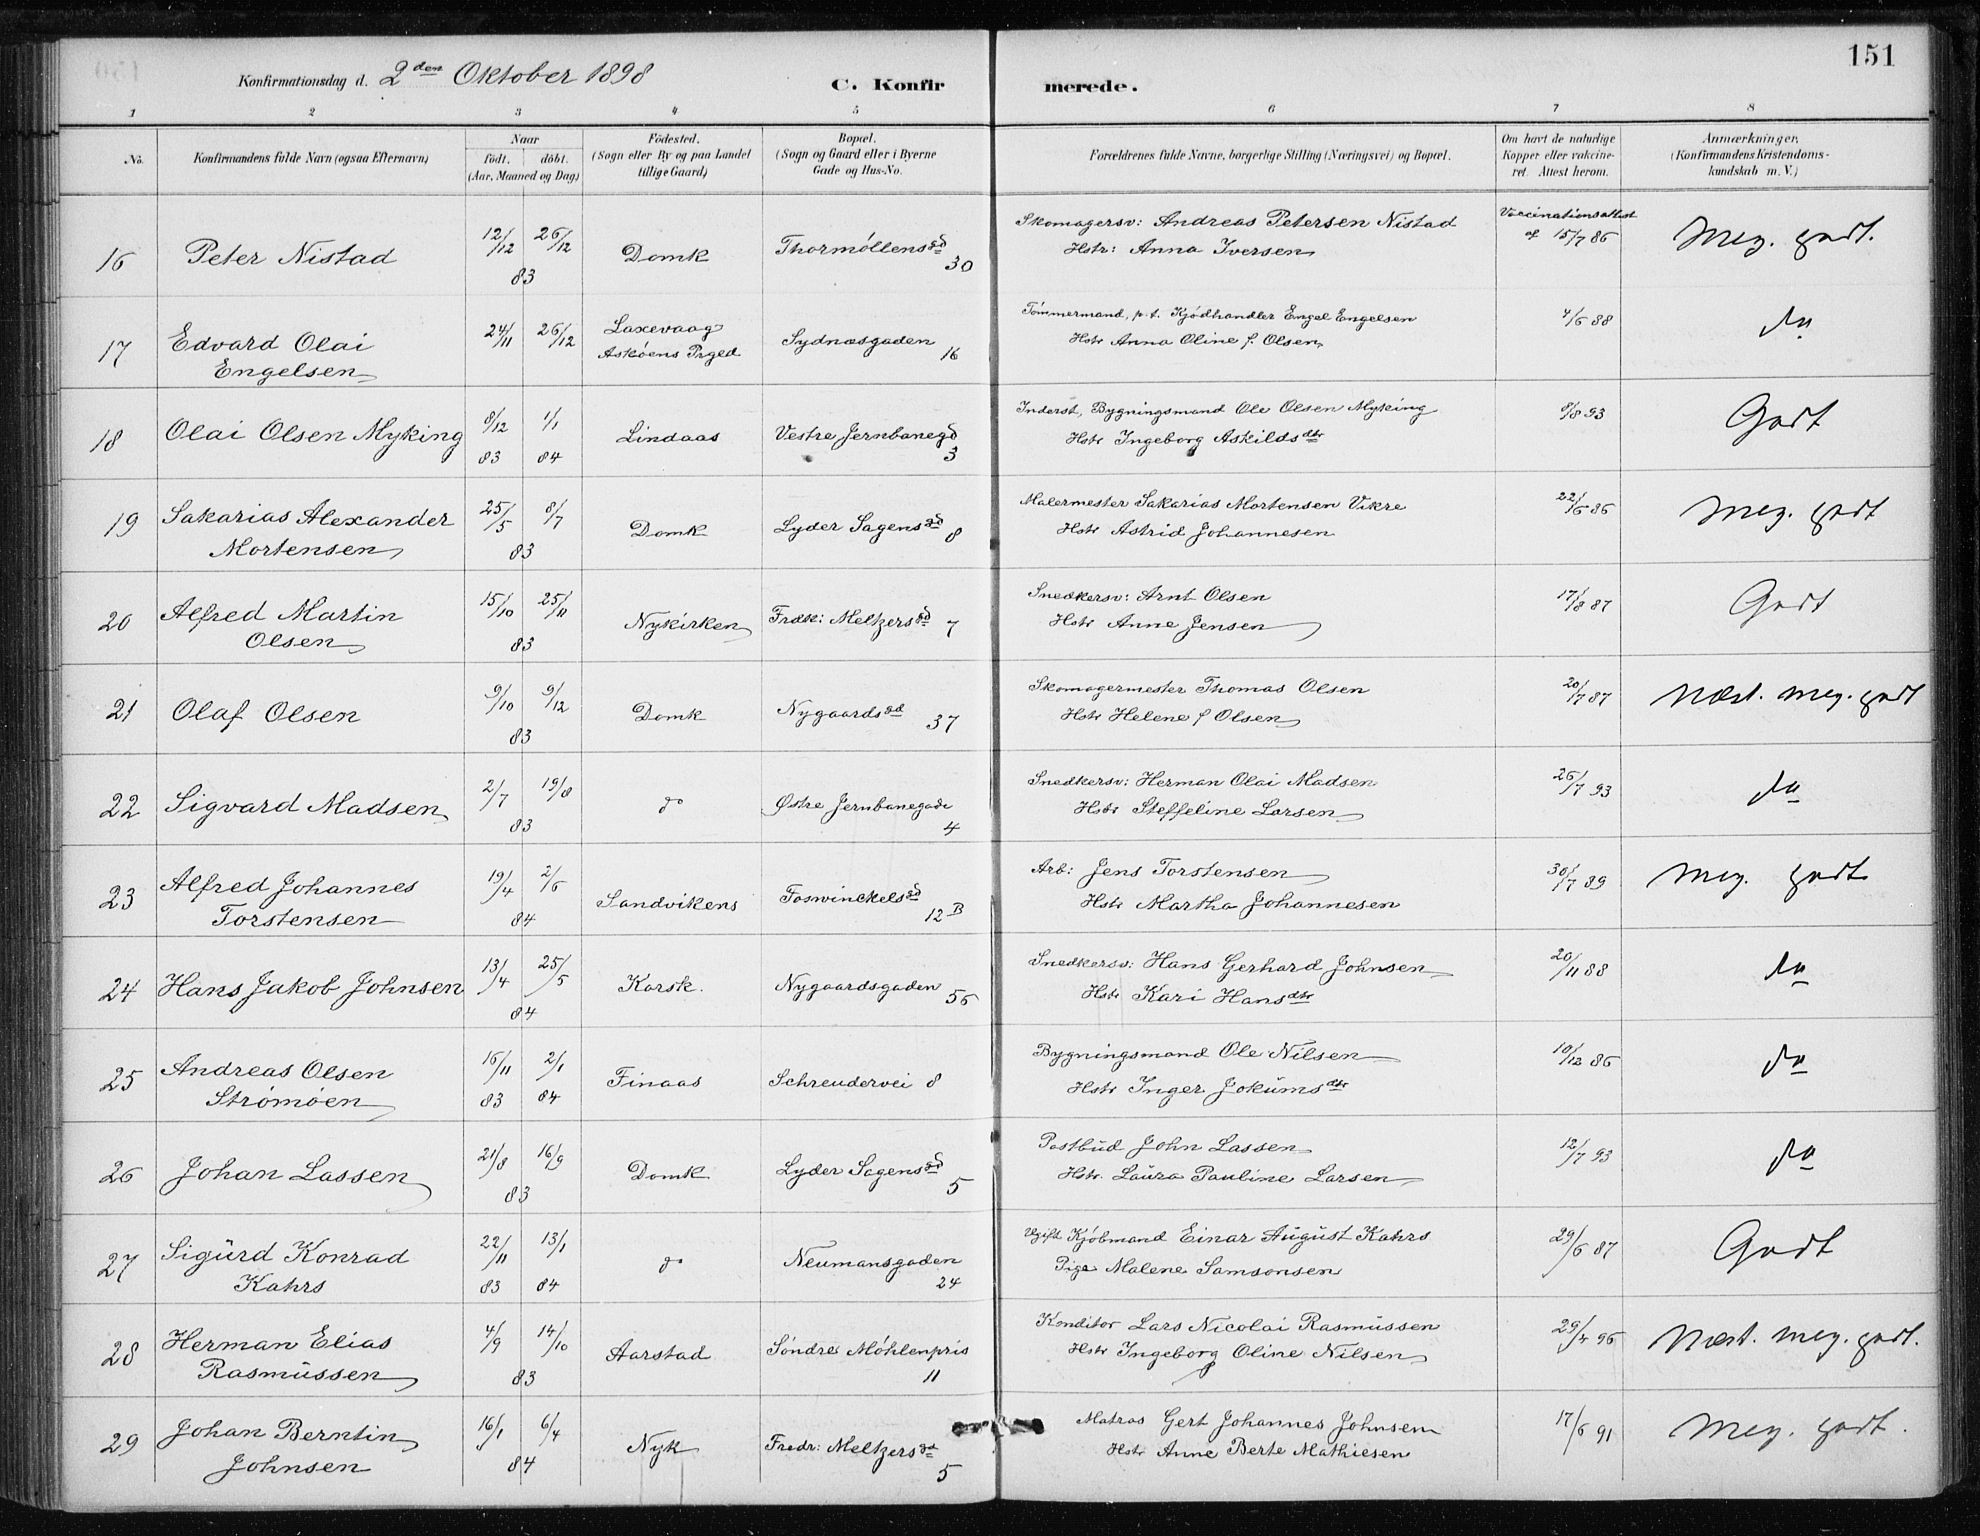 151
Konfirmationsdag d. 2den Oktober 1898
C. Konfirmerede.
1 2 3 4 5 6 7 8
No.
Konfirmandens fulde Navn (ogsaa Efternavn)
Naar
födt. döbt.
(Aar, Maaned og Dag)
Födested.
(Sogn eller By og paa Landet
tillige Gaard)
Bopæl.
(Sogn og Gaard eller i Byerne
Gade og Hus-No.
Forældrenes fulde Navne, borgerlige Stilling (Næringsvei) og Bopæl.
Om havt de naturlige
Kopper eller vakcine-
ret. Attest herom.
Anmærkninger,
(Konfirmandens Kristendoms-
kundskab m. V.)
16 Peter Nistad 12/12 26/12 83 Domk Thormøllensgd 30
Skomagersv: Andreas Petersen Nistad
Hstr: Anna Iversen
Vaccinationsattest
af 15/7 86
Meg. godt.
17 Edvard Olai
Engelsen
24/11 26/12
Laxevaag
Askøens Prgjed
Sydnæsgaden 16
Tömmermand, p.t. Kjödhandler Engel Engelsen
Hstr Anna Oline f. Olsen
4/6 88
do
18 Olai Olsen Myking 8/12 83 1/1 84 Lindaas Vestre Jernbanegd 3
Inderst, Bygningsmand Ole Olsen Myking
Hstr Ingeborg Askildsdtr
8/8 93
Godt
19 Sakarias Alexander
Mortensen
25/5 8/7 83 Domk Lyder Sagensgd 8
Malermester Sakarias Mortensen Vikre
Hstr Astrid Johannesen
22/6 86
Meg. godt
20 Alfred Martin
Olsen
15/10 25/11 83 Nykirken Fredk: Meltzersgd 7
Snedkersv: Arnt Olsen
Hstr Anne Jensen
17/8 87
Godt
21 Olaf Olsen 9/10 9/12 83 Domk Nygaardsgd 37
Skomagermester Thomas Olsen
Hstr Helene f Olsen
20/7 87
Næst. meg. godt
22 Sigvard Madsen 2/7 19/8 83 do Østre Jernbanegade 4
Snedkersv: Herman Olai Madsen
Hstr Steffeline Larsen
26/7 93
do
23 Alfred Johannes
Torstensen
19/4 2/6 84 Sandvikens Foswinckelsgd 12 B
Arb: Jens Torstensen
Hstr Martha Johannesen
30/7 89
Meg. godt
24 Hans Jakob Johnsen 13/4 25/5 84 Korsk. Nygaardsgaden 56
Snedkersv: Hans Gerhard Johnsen
Hstr Kari Hansdtr
20/11 88
do
25 Andreas Olsen
Strømøen
16/11 83 2/1 84 Finaas Schreudervei 8
Bygningsmand Ole Nilsen
Hstr Inger Jokumsdtr
10/12 86
do
26 Johan Lassen 21/8 16/9 83 Domk Lyder Sagensgd 5
Postbud John Lassen
Hstr. Laura Pauline Larsen
12/7 93
do
27 Sigurd Konrad
Kahrs
22/11 83 13/1 84 do Neumansgaden 24
Ugift Kjöbmand Einar August Kahrs
Pige Malene Samsonsen
29/6 87
Godt
28 Herman Elias
Rasmussen
4/9 14/10 83 Aarstad Söndre Möhlenpris 11
Konditor Lars Nicolai Rasmussen
Hstr Ingeborg Oline Nilsen
29/4 96
Næst. meg. godt.
29 Johan Berntin
Johnsen
16/1 6/4 84 Nyk Fredr: Meltzersgd 5
Matros Gert Johannes Johnsen
Hstr Anne Berte Mathiesen
17/6 91
Meg. godt.